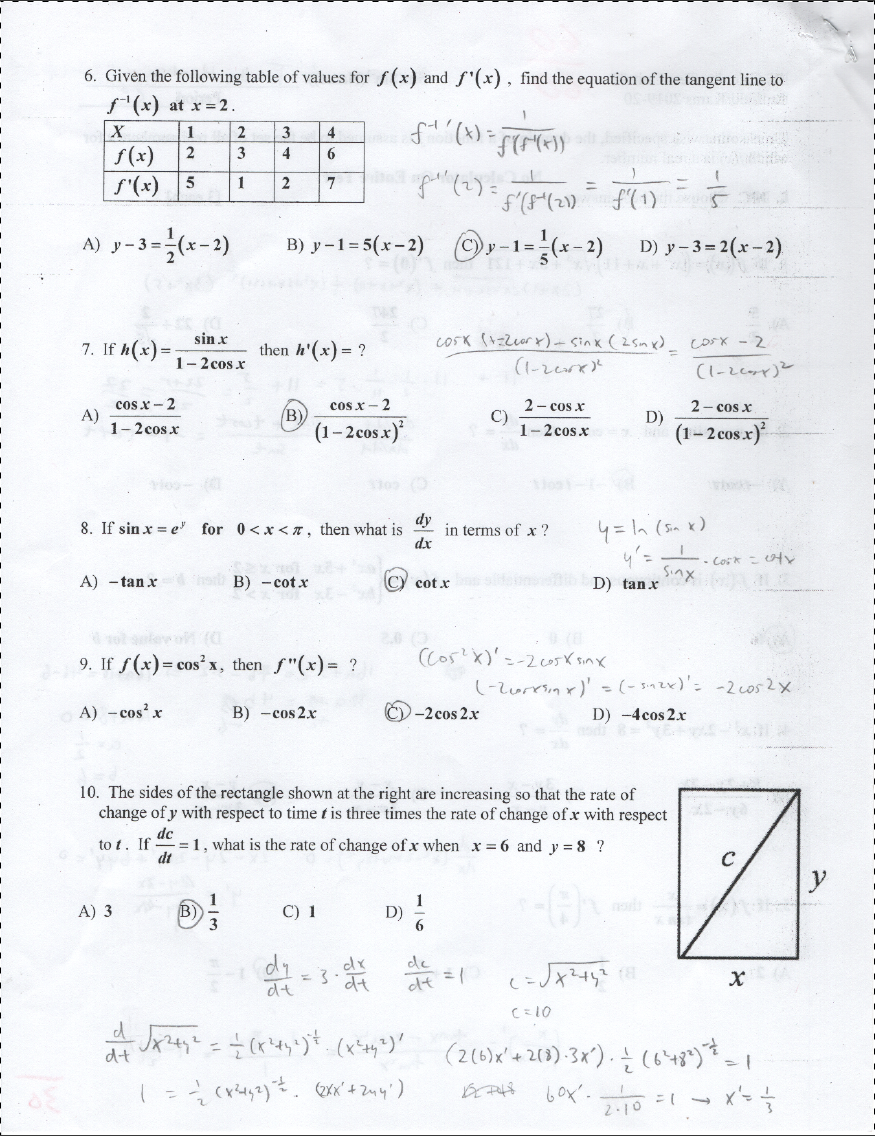 6. Given the following table of values for f(x) and f'(x) , find the equation of the tangent line to
f⁻¹(x) at x = 2 .
X 1 2 3 4
f(x) 2 3 4 6
f'(x) 5 1 2 7
f⁻¹'(x) = 1/f'(f⁻¹(x))
f⁻¹'(2) = 1/f'(f⁻¹(2)) = 1/f'(1) = 1/5
A) y − 3 = 1/2(x − 2) B) y − 1 = 5(x − 2) C) y − 1 = 1/5(x − 2) D) y − 3 = 2(x − 2)
7. If h(x) = sin x/(1 − 2cos x) then h'(x) = ?
(cosx (1−2cosx) − sinx (2sinx))/(1−2cosx)² = (cosx − 2)/(1−2cosx)²
A) (cos x − 2)/(1 − 2cos x) B) (cos x − 2)/(1 − 2cos x)² C) (2 − cos x)/(1 − 2cos x) D) (2 − cos x)/(1 − 2cos x)²
8. If sin x = eʸ for 0 < x < π , then what is dy/dx in terms of x ?
y = ln (sin x)
y' = 1/sinx · cosx = cotx
A) −tan x B) −cot x C) cot x D) tan x
9. If f(x) = cos² x, then f''(x) = ?
(cos²x)' = −2cosxsinx
(−2cosxsinx)' = (−sin2x)' = −2cos2x
A) −cos² x B) −cos 2x C) −2cos 2x D) −4cos 2x
10. The sides of the rectangle shown at the right are increasing so that the rate of
change of y with respect to time t is three times the rate of change of x with respect
to t . If dc/dt = 1 , what is the rate of change of x when x = 6 and y = 8 ?
c
y
x
A) 3 B) 1/3 C) 1 D) 1/6
dy/dt = 3 · dx/dt dc/dt = 1 c = √(x²+y²)
c = 10
d/dt √(x²+y²) = 1/2 (x²+y²)^(−1/2) · (x²+y²)' (2(6)x' + 2(8)·3x') · 1/2 (6²+8²)^(−1/2) = 1
1 = 1/2 (x²+y²)^(−1/2) · (2xx' + 2yy') 60x' · 1/(2·10) = 1 → x' = 1/3